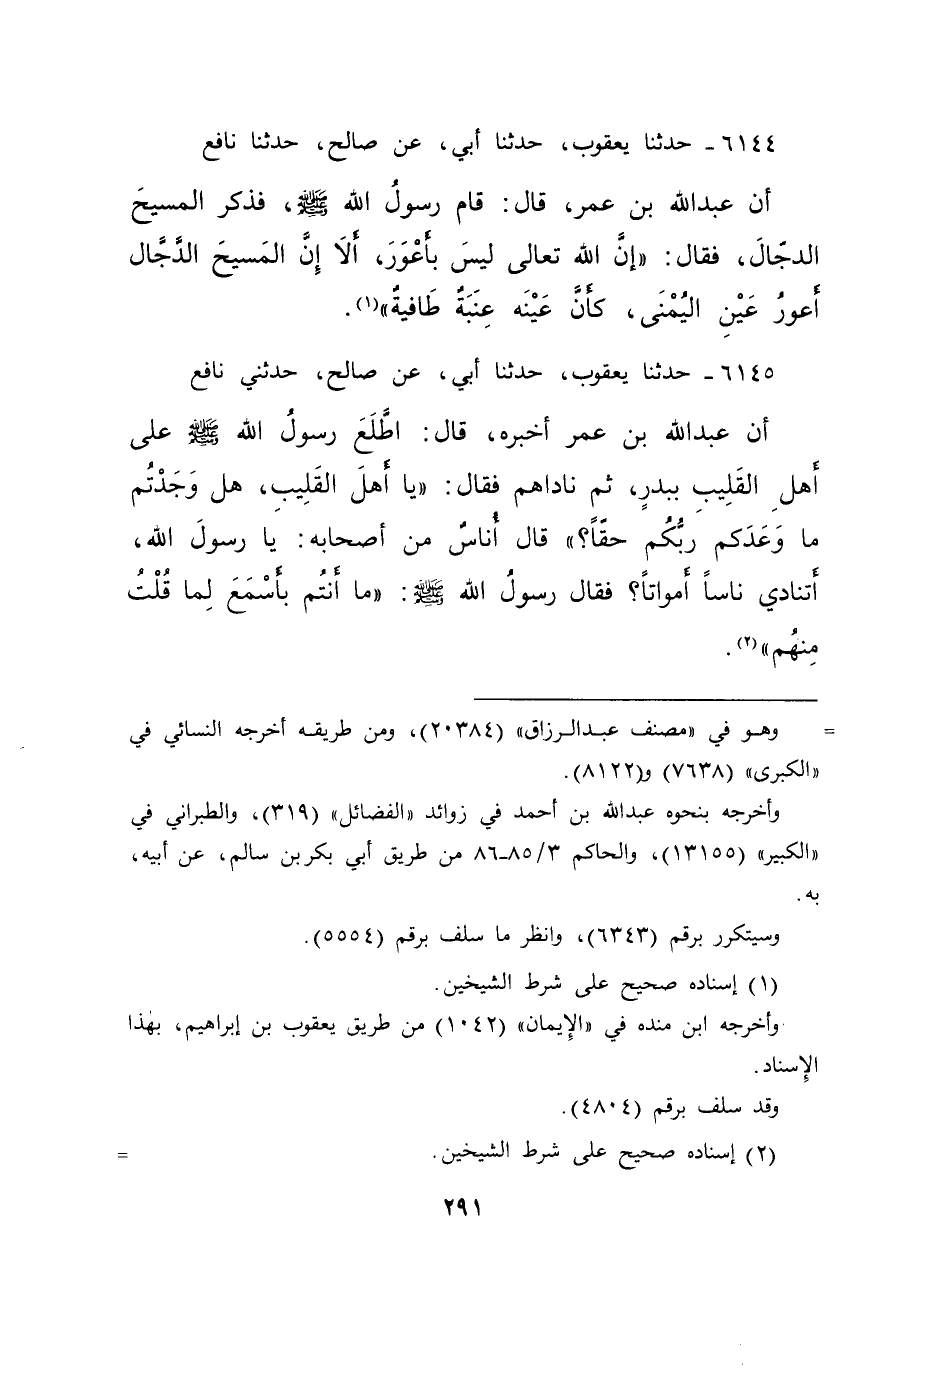 ٦١٤٤ـ حدثنا يعقوب، حدثنا أبي، عن صالح، حدثنا نافع
أن عبدالله بن عمر، قال: قام رسولُ الله ﷺ، فذكر المسيحَ
الدجّالَ، فقال: «إنَّ الله تعالى ليسَ بأَعْوَرَ، أَلَا إِنَّ المَسيحَ الدَّجَّال
أَعورُ عَيْنِ اليُمْنَى، كأَنَّ عَيْنَه عِنَبَةٌ طَافيةٌ»(١).
٦١٤٥ـ حدثنا يعقوب، حدثنا أبي، عن صالح، حدثني نافع
أن عبدالله بن عمر أخبره، قال: اطَّلَعَ رسولُ الله ﷺ على
أَهلِ القَلِيبِ ببدرٍ، ثم ناداهم فقال: «يا أَهلَ القَلِيبِ، هل وَجَدْتُم
ما وَعَدَكم ربُّكُم حقّاً؟» قال أُناسٌ من أصحابه: يا رسولَ الله،
أَتنادي ناساً أَمواتاً؟ فقال رسولُ الله ﷺ: «ما أَنتُم بأَسْمَعَ لِما قُلْتُ
مِنهُم»(٢).
= وهو في «مصنف عبدالرزاق» (٢٠٣٨٤)، ومن طريقه أخرجه النسائي في
«الكبرى» (٧٦٣٨) و(٨١٢٢).
وأخرجه بنحوه عبدالله بن أحمد في زوائد «الفضائل» (٣١٩)، والطبراني في
«الكبير» (١٣١٥٥)، والحاكم ٣/٨٥ـ٨٦ من طريق أبي بكر بن سالم، عن أبيه،
به.
وسيتكرر برقم (٦٣٤٣)، وانظر ما سلف برقم (٥٥٥٤).
(١) إسناده صحيح على شرط الشيخين.
وأخرجه ابن منده في «الإيمان» (١٠٤٢) من طريق يعقوب بن إبراهيم، بهٰذا
الإسناد.
وقد سلف برقم (٤٨٠٤).
(٢) إسناده صحيح على شرط الشيخين. =
٢٩١